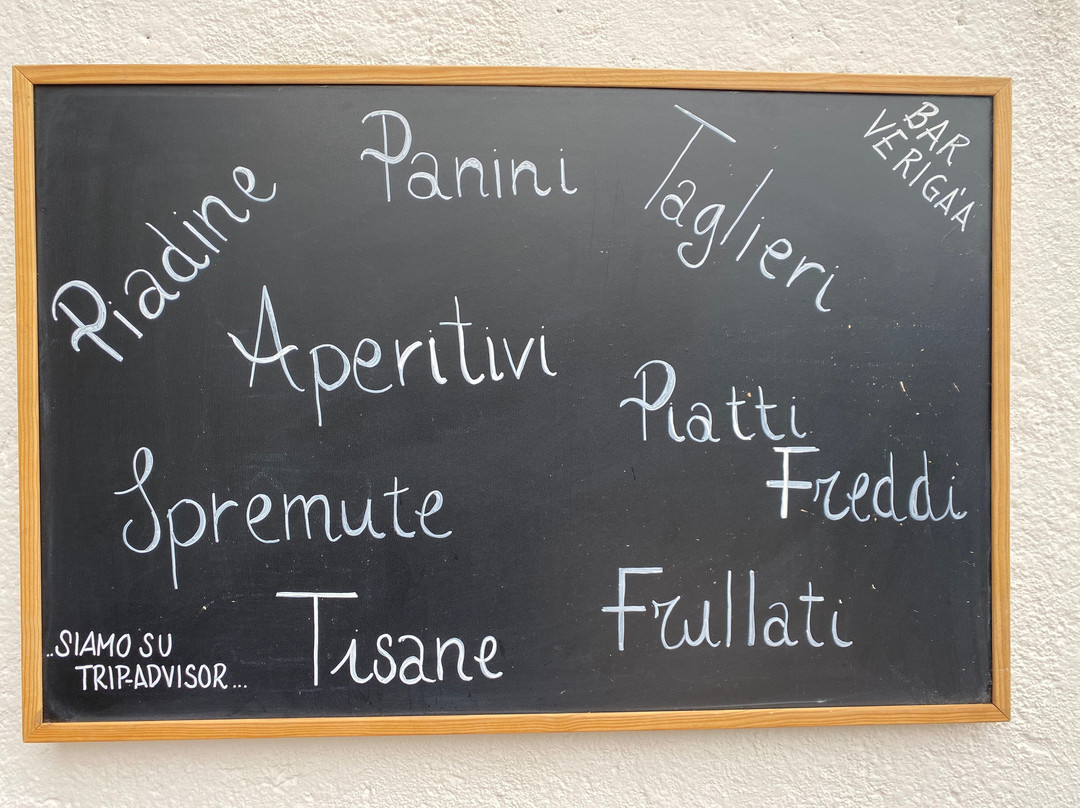 BAR
VERIGA'A
Piadine
Panini
Taglieri
Aperitivi
Piatti
Freddi
Spremute
Frullati
Tisane
..SIAMO SU
TRIP-ADVISOR...